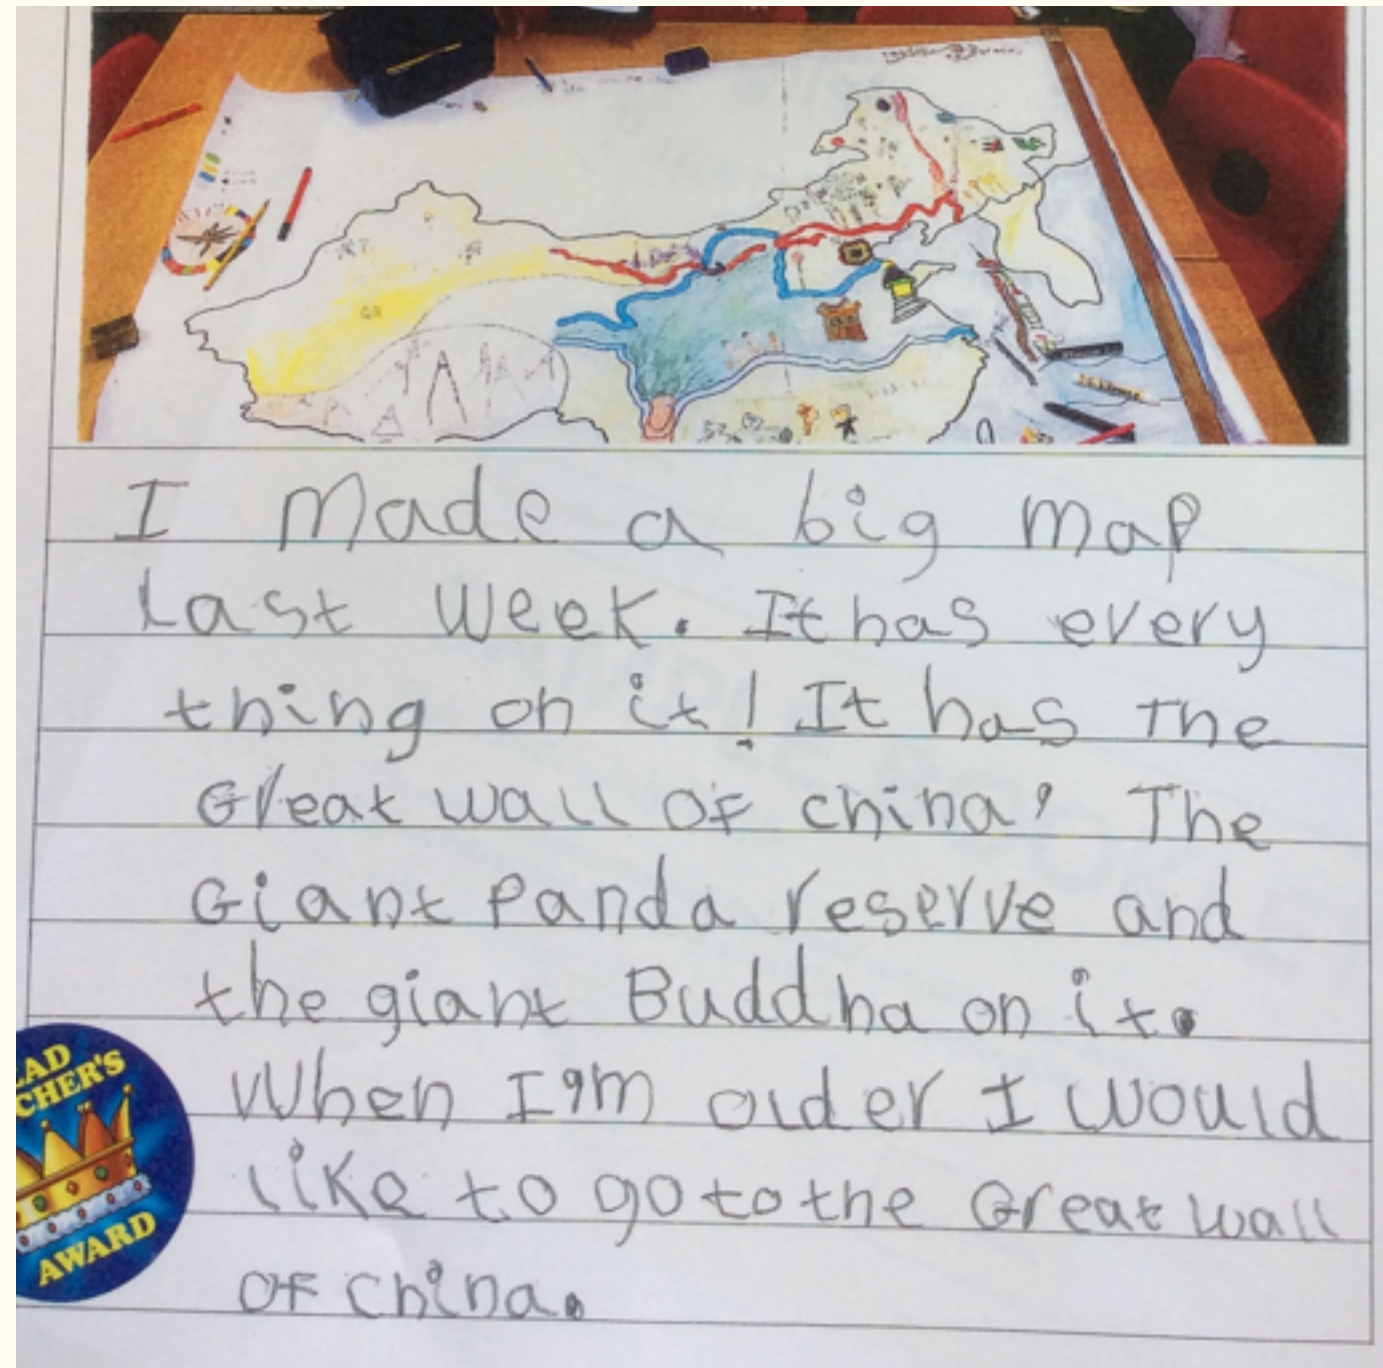 I made a big map
last week. It has every
thing on it! It has The
Great wall OF china, The
Giant Panda reserve and
the giant Buddha on it.
When I'm older I would
like to go to the Great wall
OF china.
AWARD